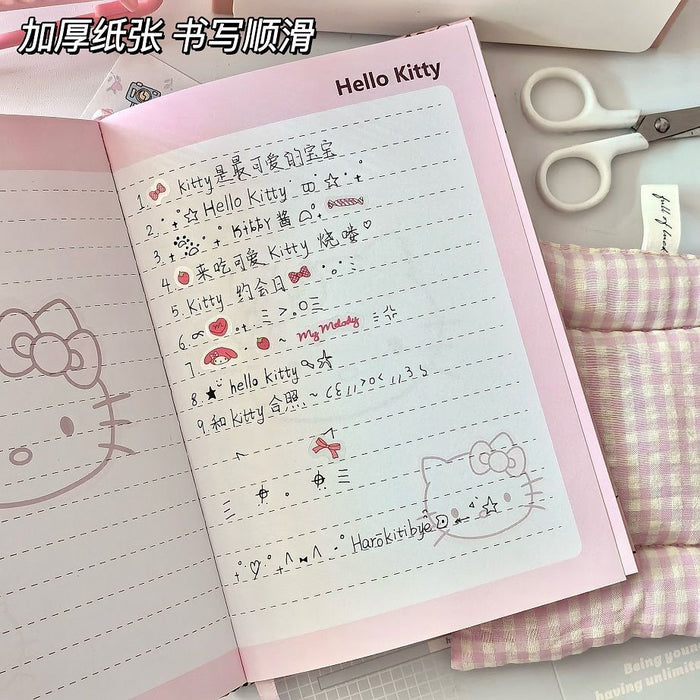 加厚纸张 书写顺滑
Hello Kitty
1. Kitty是最可爱的宝宝
2. Hello Kitty
3. Kitty 酱
4. 来吃可爱 Kitty 烧喽
5. Kitty 约会日
6.
7. My Melody
8. hello Kitty
9. 和Kitty合照~
Harōkitibyē
full of
Being young
having unlimite